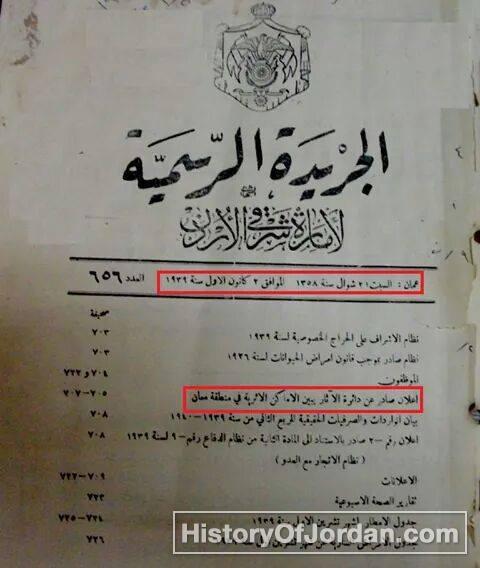 الجريدة الرسمية
لامارة شرق الأردن
عمان : السبت ٢١ شوال سنة ١٣٥٨ الموافق ٢ كانون الاول سنة ١٩٣٩ العدد ٦٥٦
صحيفة
نظام الاشراف على الحراج الخصوصية لسنة ١٩٣٩ ٧٠٣
نظام صادر بموجب قانون امراض الحيوانات لسنة ١٩٢٦ ٧٠٣
الموظفون ٧٠٤ و ٧٢٢
اعلان صادر عن دائرة الآثار يبين الاماكن الاثرية في منطقة معان ٧٠٥-٧٠٧
بيان الواردات والصرفيات الحقيقية للربع الثاني من سنة ١٩٣٩-١٩٤٠ ٧٠٨
اعلان رقم -٢ صادر بالاستناد الى المادة الثانية من نظام الدفاع رقم-٩ لسنة ١٩٣٩ ٧٠٨
( نظام الاتجار مع العدو )
الاعلانات ٧٠٩-٧٢٢
تقارير الصحة الاسبوعية ٧٢٣
جدول الامطار لشهر تشرين الاول سنة ١٩٣٩ ٧٢٤-٧٢٥
جدول الامراض ٧٢٦
HistoryOfJordan.com